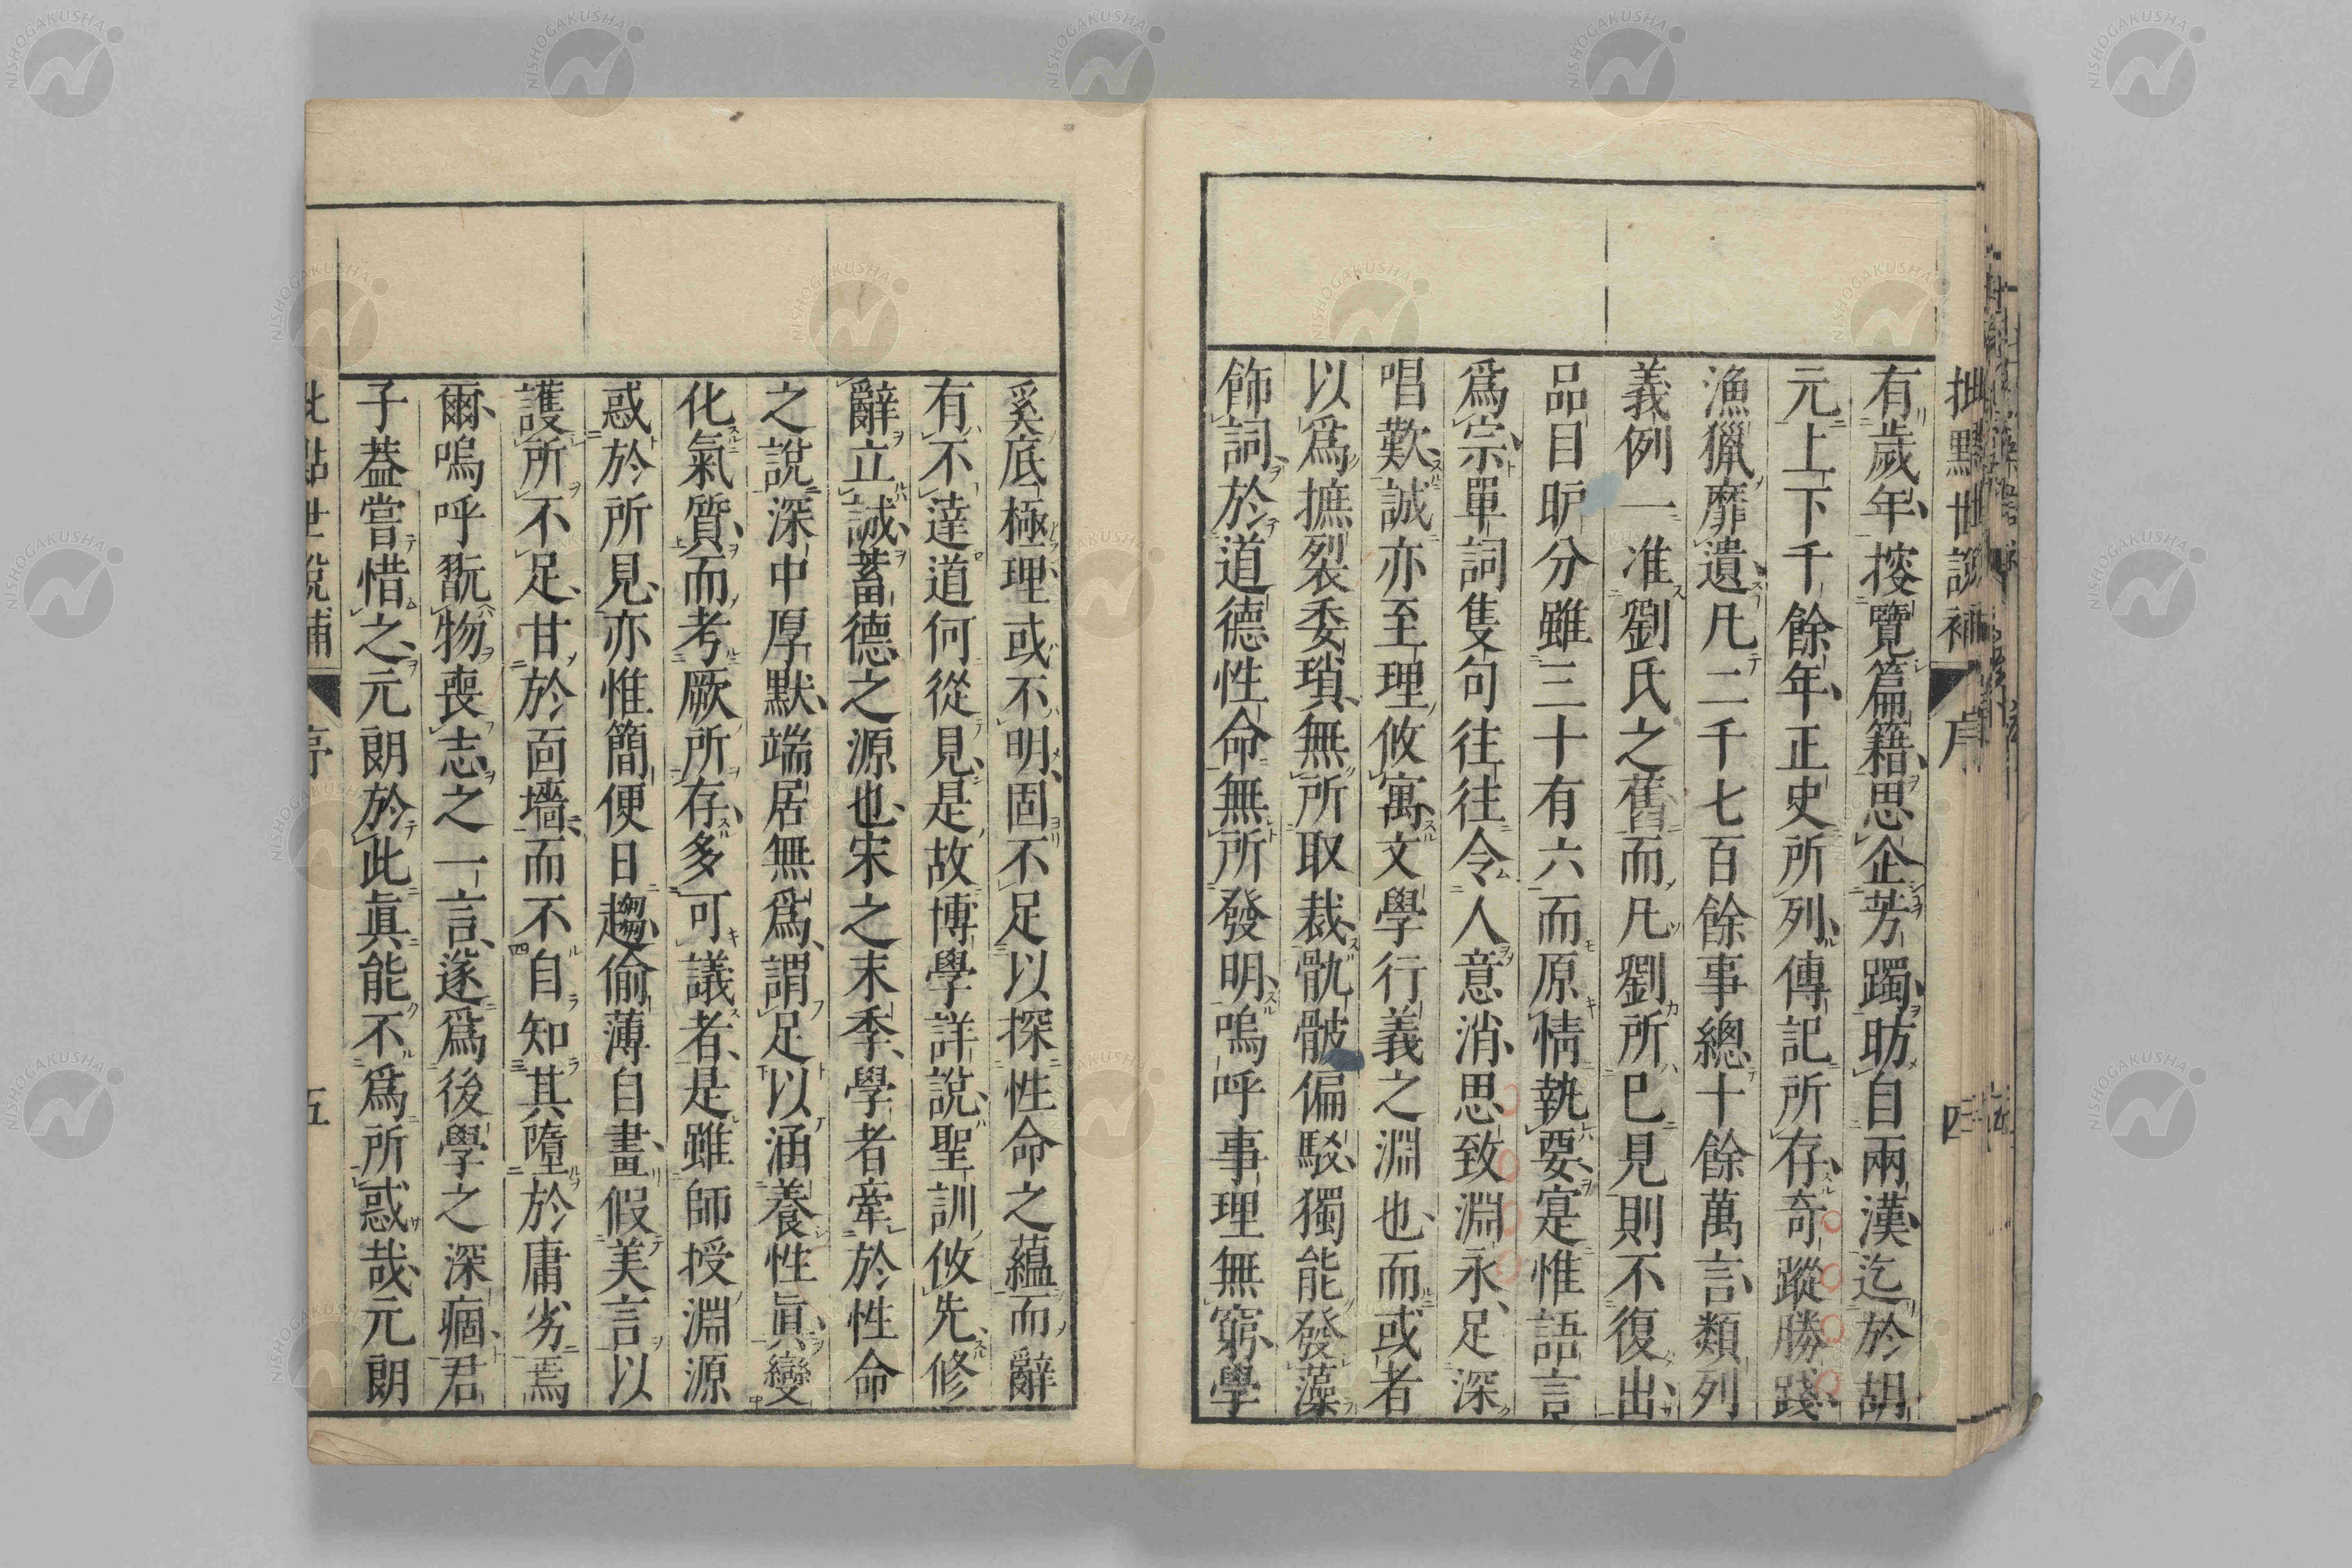 批點世說補 序 四
有歲年挍覽篇籍思企芳躅昉自兩漢迄於胡
元上下千餘年正史所列傳記所存奇蹤勝踐
漁獵靡遺凡二千七百餘事總十餘萬言類列
義例一准劉氏之舊而凡劉所已見則不復出
品目昈分雖三十有六而原情執要寔惟語言
爲宗單詞隻句往往令人意消思致淵永足深
唱歎誠亦至理攸寓文學行義之淵也而或者
以爲摭裂委瑣無所取裁骫骳偏駁獨能發藻
飾詞於道德性命無所發明嗚呼事理無窮學
奚底極理或不明固不足以探性命之蘊而辭
有不達道何從見是故博學詳說聖訓攸先修
辭立誠蓄德之源也宋之末季學者牽於性命
之說深中厚默端居無爲謂足以涵養性眞變
化氣質而考厥所存多可議者是雖師授淵源
惑於所見亦惟簡便日趨偷薄自畫假美言以
護所不足甘於面墻而不自知其墮於庸劣焉
爾嗚呼翫物喪志之一言遂爲後學之深痼君
子葢嘗惜之元朗於此眞能不爲所惑哉元朗
批點世說補 序 五
NISHOGAKUSHA